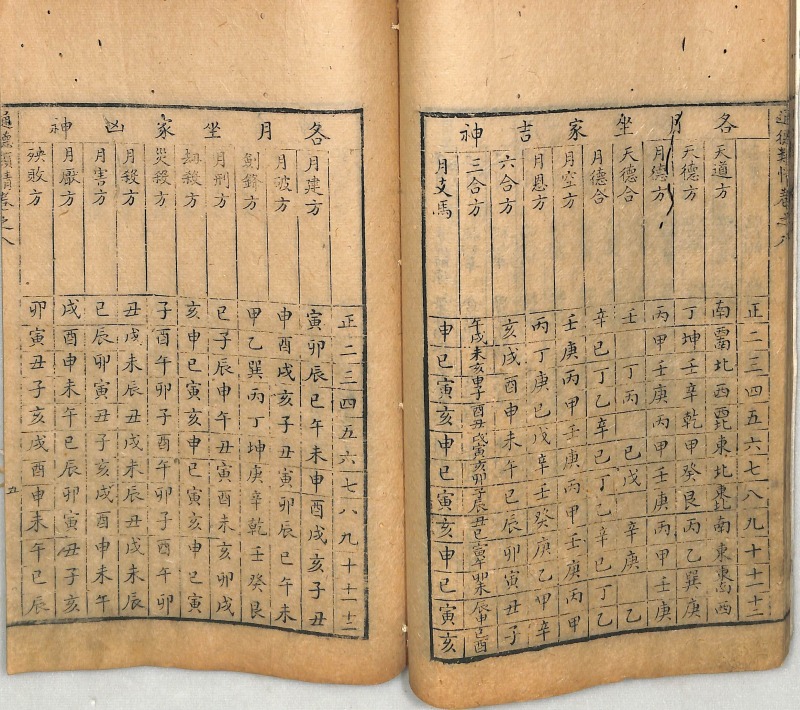 通德類情卷之八
各月坐家吉神
正二三四五六七八九十十一十二
天道方 南西南北西西北東北東北南東東南西
天德方 丁坤壬辛乾甲癸艮丙乙巽庚
月德方 丙甲壬庚丙甲壬庚丙甲壬庚
天德合 壬 丁丙 己戊 辛庚 乙
月德合 辛己丁乙辛己丁乙辛己丁乙
月空方 壬庚丙甲壬庚丙甲壬庚丙甲
月恩方 丙丁庚己戊辛壬癸庚乙甲辛
六合方 亥戌酉申未午巳辰卯寅丑子
三合方 午戌未亥申子酉丑戌寅亥卯子辰丑巳寅午卯未辰申巳酉
月支馬 申巳寅亥申巳寅亥申巳寅亥
各月坐家凶神
正二三四五六七八九十十一十二
月建方 寅卯辰巳午未申酉戌亥子丑
月破方 申酉戌亥子丑寅卯辰巳午未
劍鋒方 甲乙巽丙丁坤庚辛乾壬癸艮
月刑方 巳子辰申午丑寅酉未亥卯戌
劫殺方 亥申巳寅亥申巳寅亥申巳寅
災殺方 子酉午卯子酉午卯子酉午卯
月殺方 丑戌未辰丑戌未辰丑戌未辰
月害方 巳辰卯寅丑子亥戌酉申未午
月厭方 戌酉申未午巳辰卯寅丑子亥
殃敗方 卯寅丑子亥戌酉申未午巳辰
通德類情卷之八
五